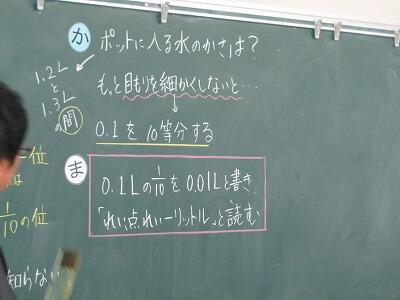 か ポットに入る水のかさは?
1.2L
と
1.3L
の間
もっと目もりを細かくしないと…
0.1を10等分する
ま
0.1Lの1/10を0.01Lと書き、
「れい点れいーリットル」と読む
一位
は
1/10の位
知らない